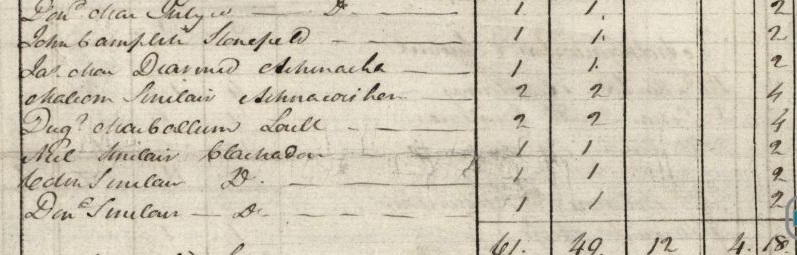 Don.d Mac Intyre — D.o 1 1 2
John Campbell Stonefeld — 1 1 2
Ja.s Mac Diarmid Achinacha — 1 1 2
Malcom Sinclair Achnacroishen 2 2 4
Dug.d MacCallum 2 2 4
Neil Sinclair Clachadou 1 1 2
Sinclair D.o — 1 1 2
Don.d Sinclair — D.o — 1 1 2
61. 49. 12 4. 18.